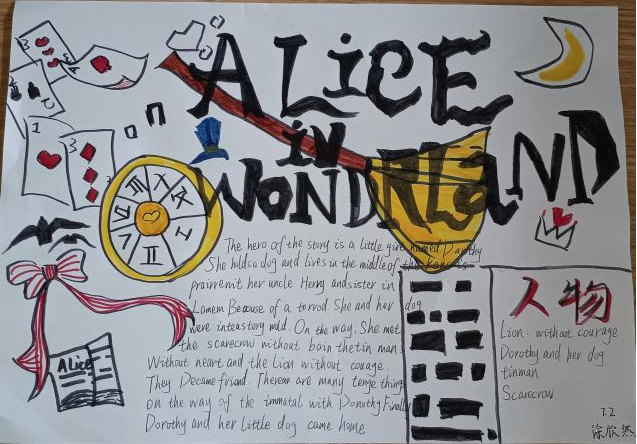 ALICE
in
WONDERLaND
The hero of the story is a little girl named Dorothy
She holds a dog and lives in the middle of the Kansas
prairie with her uncle Henry and sister in
Because of a She and her dog
were into a story world. On the way. She met
the scarecrow without bain the tin man.
Without heart and the Lion without courage.
They Became friend. There are many things
on the way of the immatal with Dorothy Finally
Dorothy and her little dog came home
Alice
人物
Lion: without courage
Dorothy and her dog
tinman
Scarecrow
7.2
徐欣然